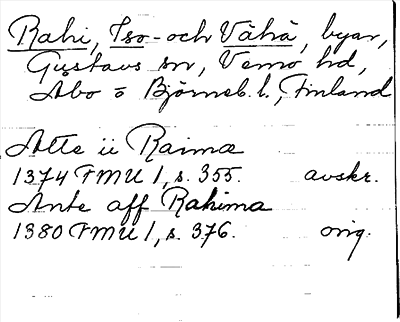 Rahi, Iso- och Vähä, byar,
Gustavs sn, Vemo hd,
Åbo o Björneb. l., Finland
Atte ii Raimæ
1374 FMU 1, s. 355. avskr.
Ante aff Rahima
1380 FMU 1, s. 376. orig.